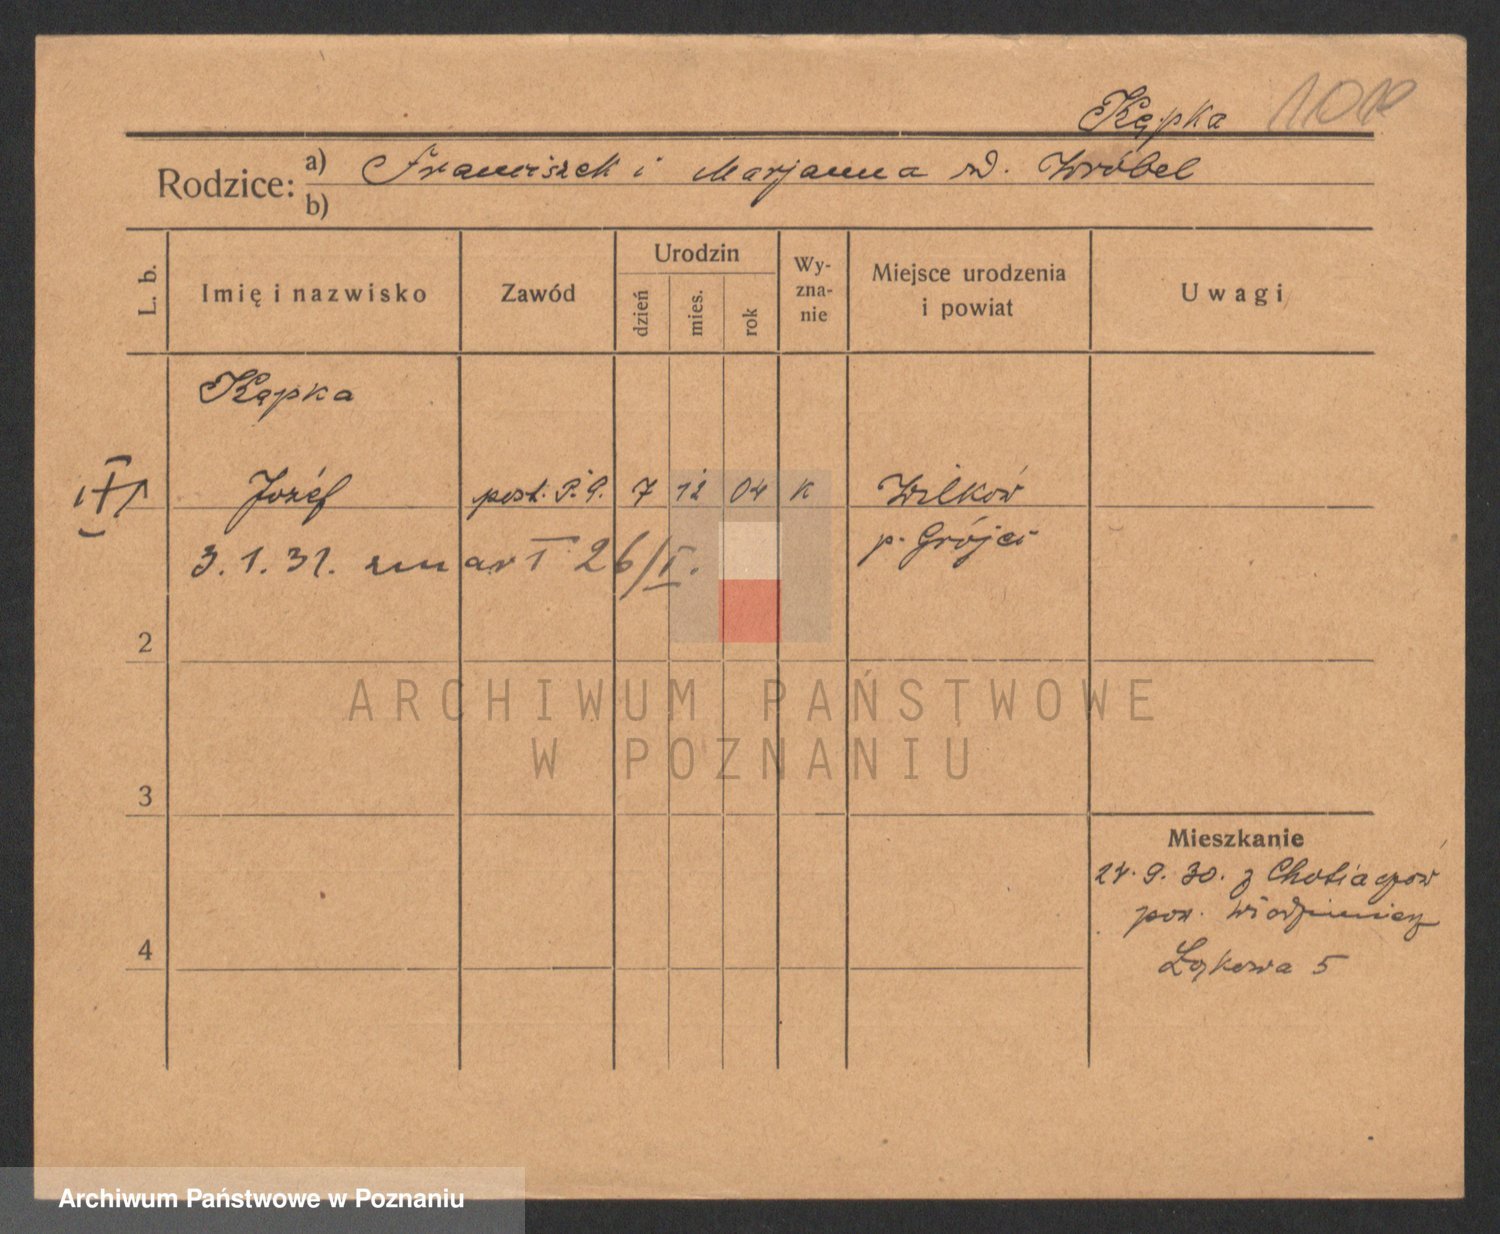 Kępka
Rodzice: a) Franciszek i Marjanna rd. Wróbel
b)
L. b.
Imię i nazwisko
Zawód
Urodzin
dzień
mies.
rok
Wy-
zna-
nie
Miejsce urodzenia
i powiat
Uwagi
Kępka
Józef post. P.P. 7 12 04 k Wilków
p. Grójec
3.1.31. zmarł 26/I.
2
3
4
Mieszkanie
24. 9. 30. z
pow.
Łąkowa 5
ARCHIWUM PAŃSTWOWE
W POZNANIU
Archiwum Państwowe w Poznaniu